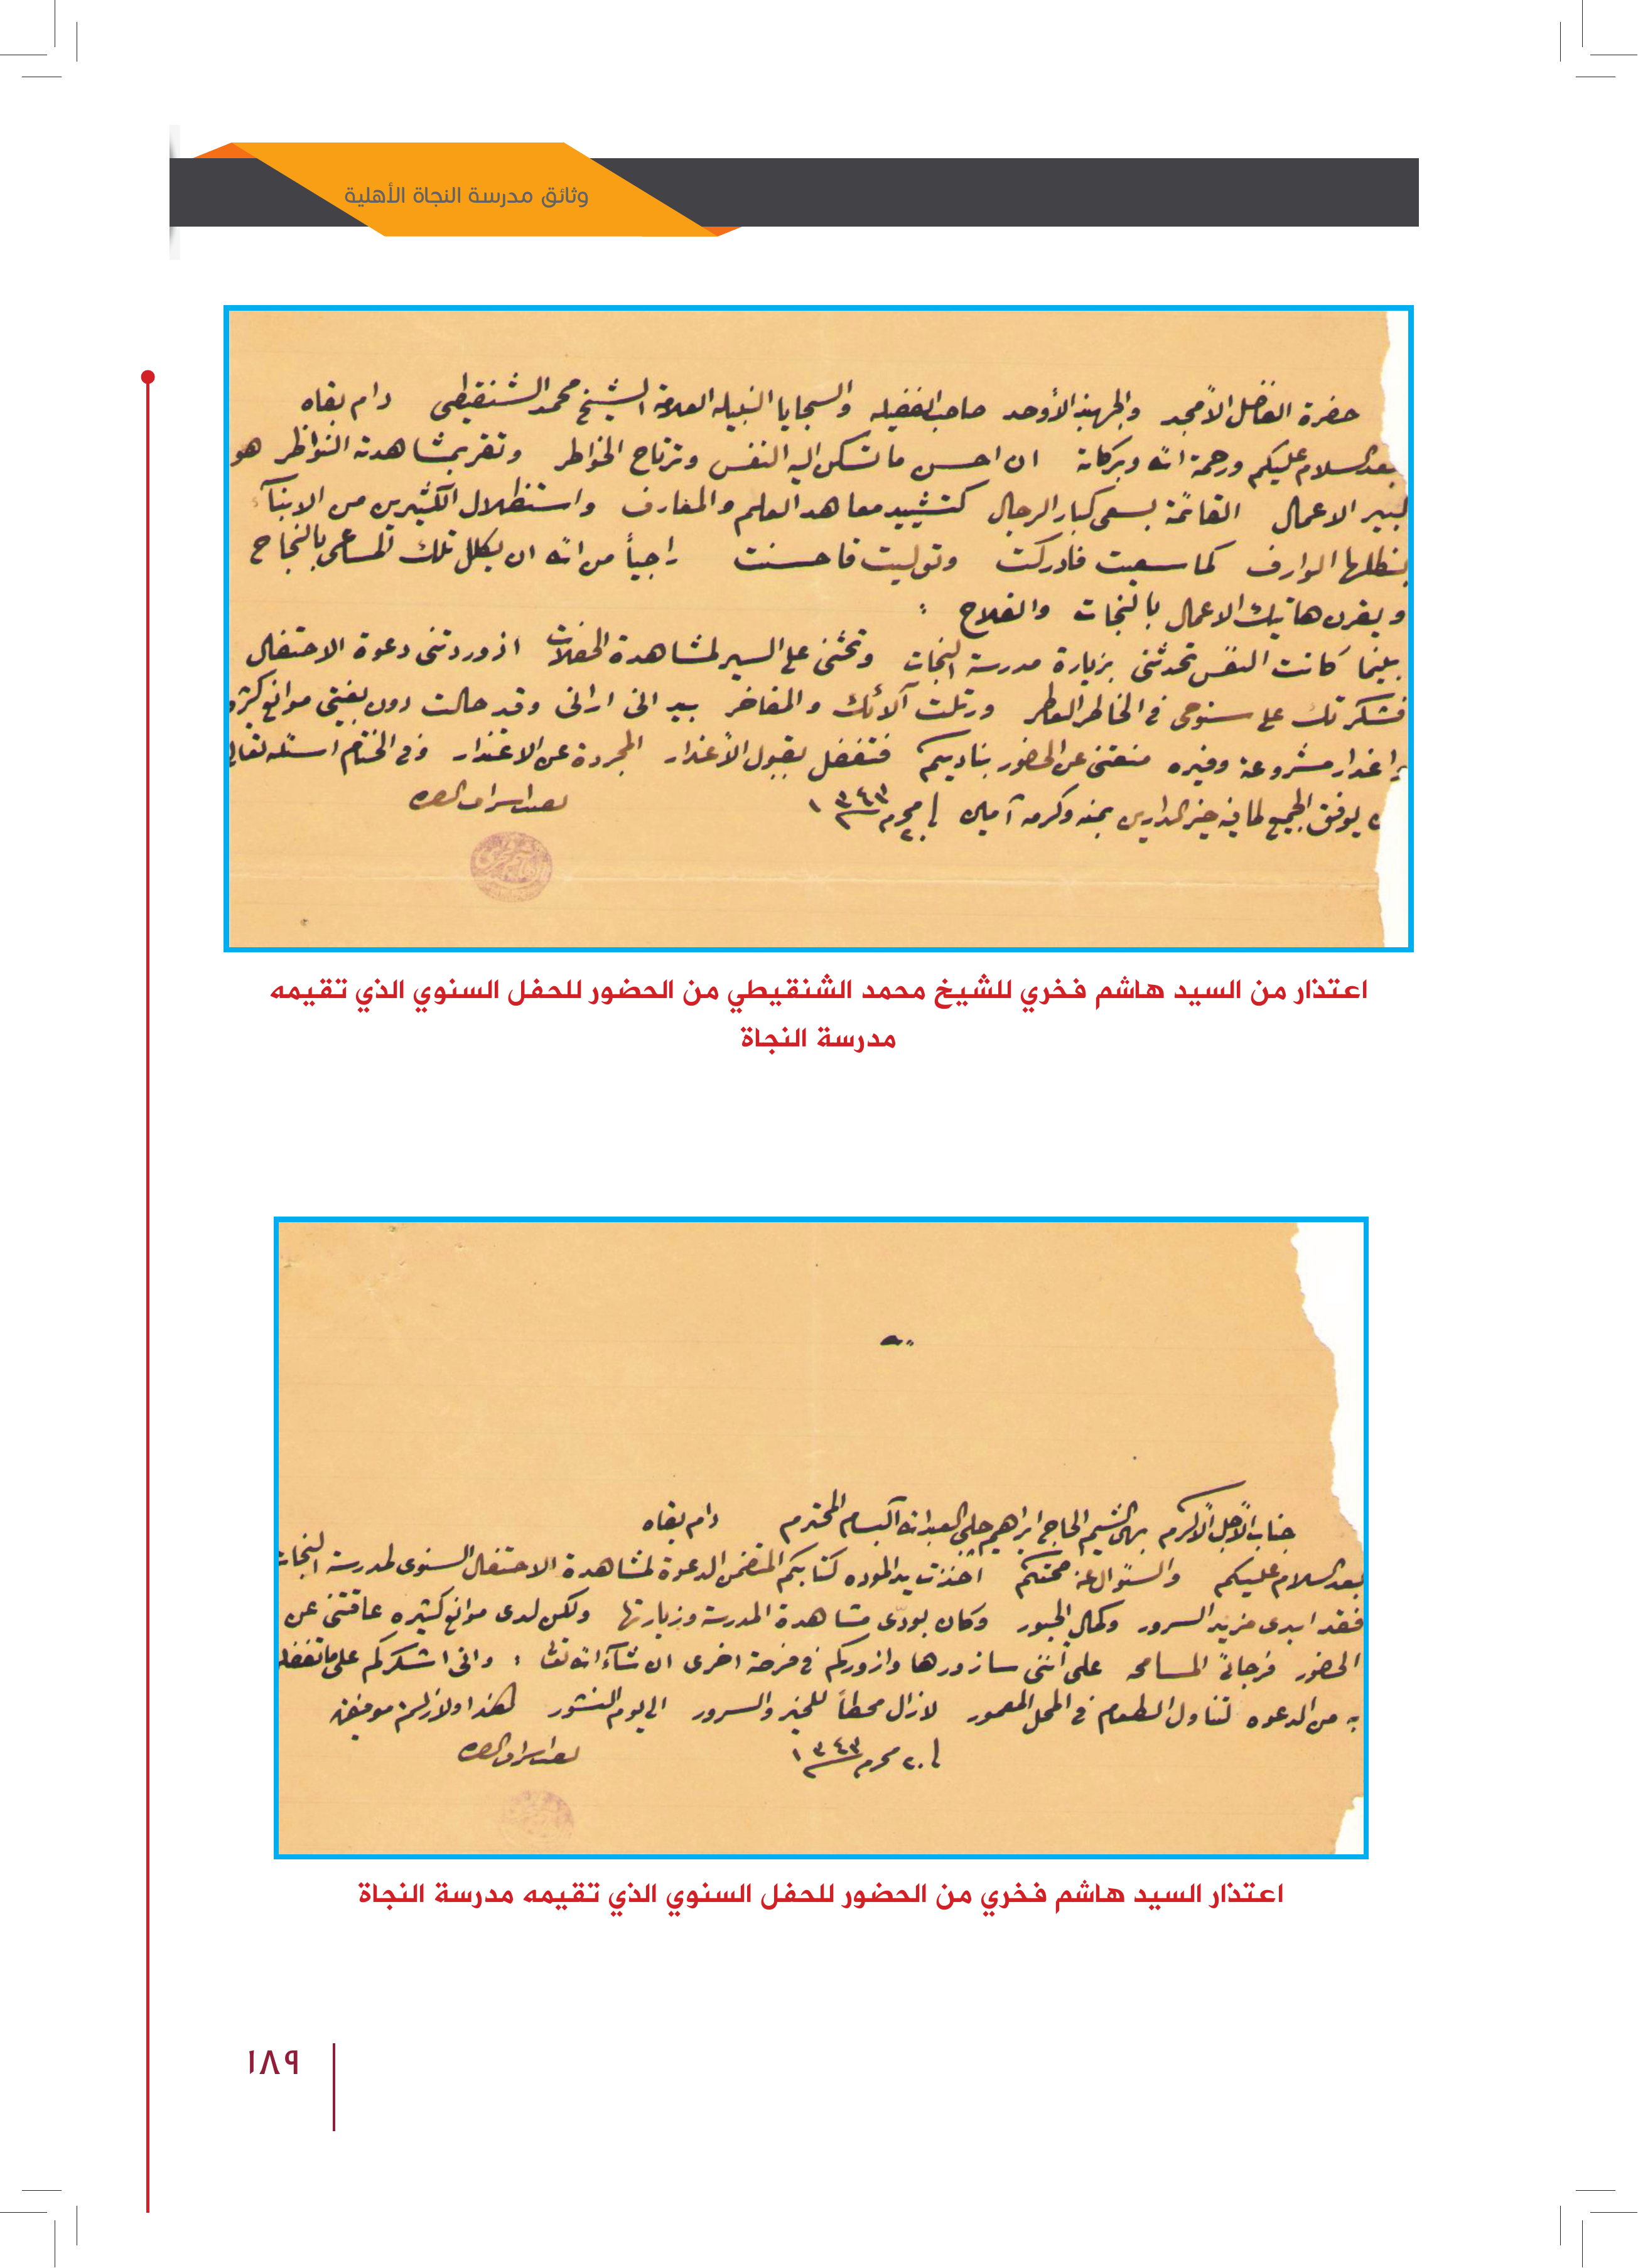 وثائق مدرسة النجاة الأهلية
حضرة الفاضل الأمجد والجهبذ الأوحد صاحب الفضيله والسجايا النبيله العلامة الشيخ محمد الشنقيطي دام بقاه
بعد السلام عليكم ورحمة الله وبركاته ان احسن ما تسكن اليه النفس وترتاح الخواطر وتقر بمشاهدته النواظر هو
كبير الاعمال القائمة بسعي كبار الرجال كتشييد معاهد العلم والمعارف واستظلال الكثيرين من الابنآء
بظلها الوارف كما سعيت فادركت وتوليت فاحسنت راجياً من الله ان يكلل تلك المساعي بالنجاح
ويقرن هاتيك الاعمال بالنجات والفلاح :
بينما كانت النفس تحدثني بزيارة مدرسة النجات وتحثني على السير لمشاهدة الحفلات اذ وردتني دعوة الاحتفال
فشكرتك على سنوحي في الخاطر العاطر ورتلت آلائك والمفاخر بيد اني اراني وقد حالت دون بغيتي موانع كثيره
اعذار مشروعة وفيره منعتني عن الحضور بناديكم فتفضل بقبول الأعذار المجردة عن الاعتذار وفي الختام اسئله تعالى
يوفق الجميع لما فيه خير الدارين بمنه وكرمه آمين ٢٠ محرم ١٣٤٣
اعتذار من السيد هاشم فخري للشيخ محمد الشنقيطي من الحضور للحفل السنوي الذي تقيمه
مدرسة النجاة
جناب الأجل الأكرم بهي الشيم الحاج ابراهيم جلبي العبدالله آلبسام المحترم دام بقاه
بعد السلام عليكم والسئوال عن صحتكم اخذت بيد الموده كتابكم المتضمن الدعوة لمشاهدة الاحتفال السنوي لمدرسة النجات
فقد ابدى مزيد السرور وكمال الحبور وكان بودّي مشاهدة المدرسة وزيارتها ولكن لدى موانع كثيره عاقتني عن
الحضور فرجائي المسامحه على أنني سازورها وازوركم في فرصة اخرى ان شآء الله تعالى : واني اشكركم على ماتفضلتم
به من الدعوه لتناول الطعام في المحل المعمور لازال محطاً للخير والسرور الى يوم النشور هذا ولازلتم موفقين
٢٠ محرم ١٣٤٣
اعتذار السيد هاشم فخري من الحضور للحفل السنوي الذي تقيمه مدرسة النجاة
١٨٩